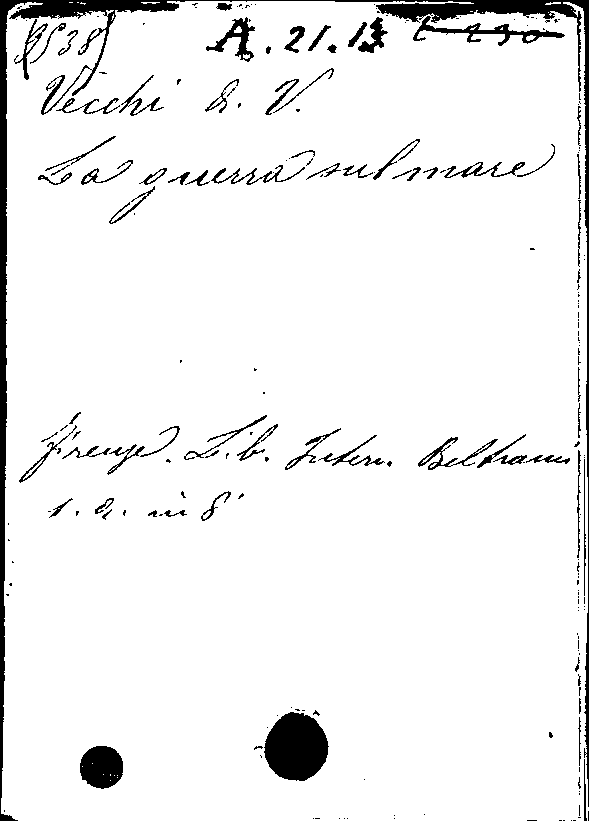 A. 21. 13
Vecchi A. V.
La guerra sul mare
Firenze. Lib. Intern. Beltrami
s. a. in 8°